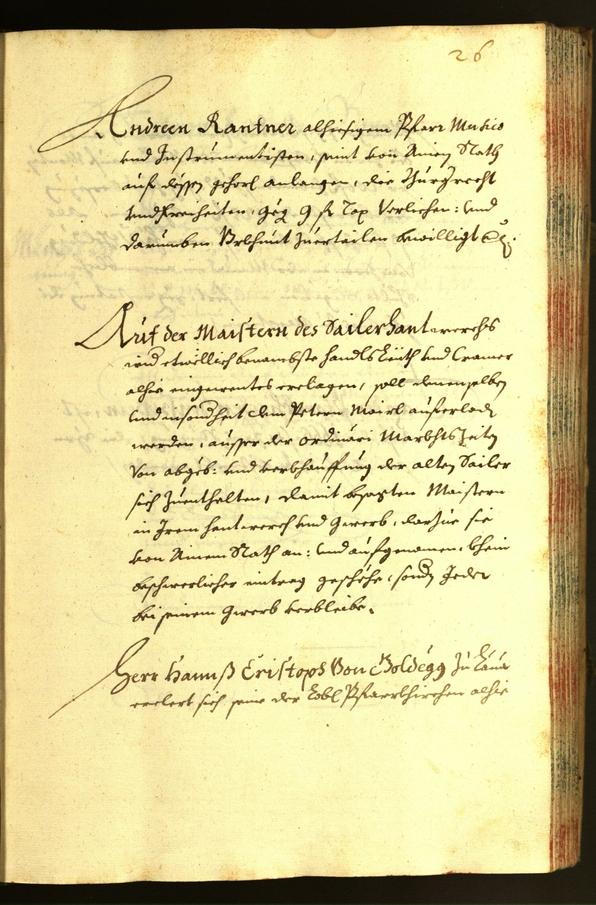 26
Andreen Rantner alhiesigem Pfarr Musico
und Instrumentisten, seint von Ainem Rath
auf dessen gehors. anlangen, die Burgrecht
und Freiheiten, geg. 9 fl Tax Verlichen: und
darumben Urkhunt zuerteilen bewilligt
Auf der Maistern des Sailerhantwerchs
wid etwellich benambste handlsleith und Cramer
alhie eingewentes erclagen, soll denenselben
und in sonderheit dem Petern Mairl auferlad
werden, ausser der ordinari Marckhts Zeiten
von abgeb: und verkhauffung der alten Sailer
sich zuenthalten, damit besagten Maistern
in Irem hantwerch und Gwerb, darzue sie
von Ainem Rath an: und aufgenomen, khein
beschwerlicher eintrag geschehe, sonder Jeder
bei seinem Gwerb verbleibe.
Herr Hannß Cristoph Von Goldegg zu
erclert sich seine der Lobl Pfarrkhirchen alhie